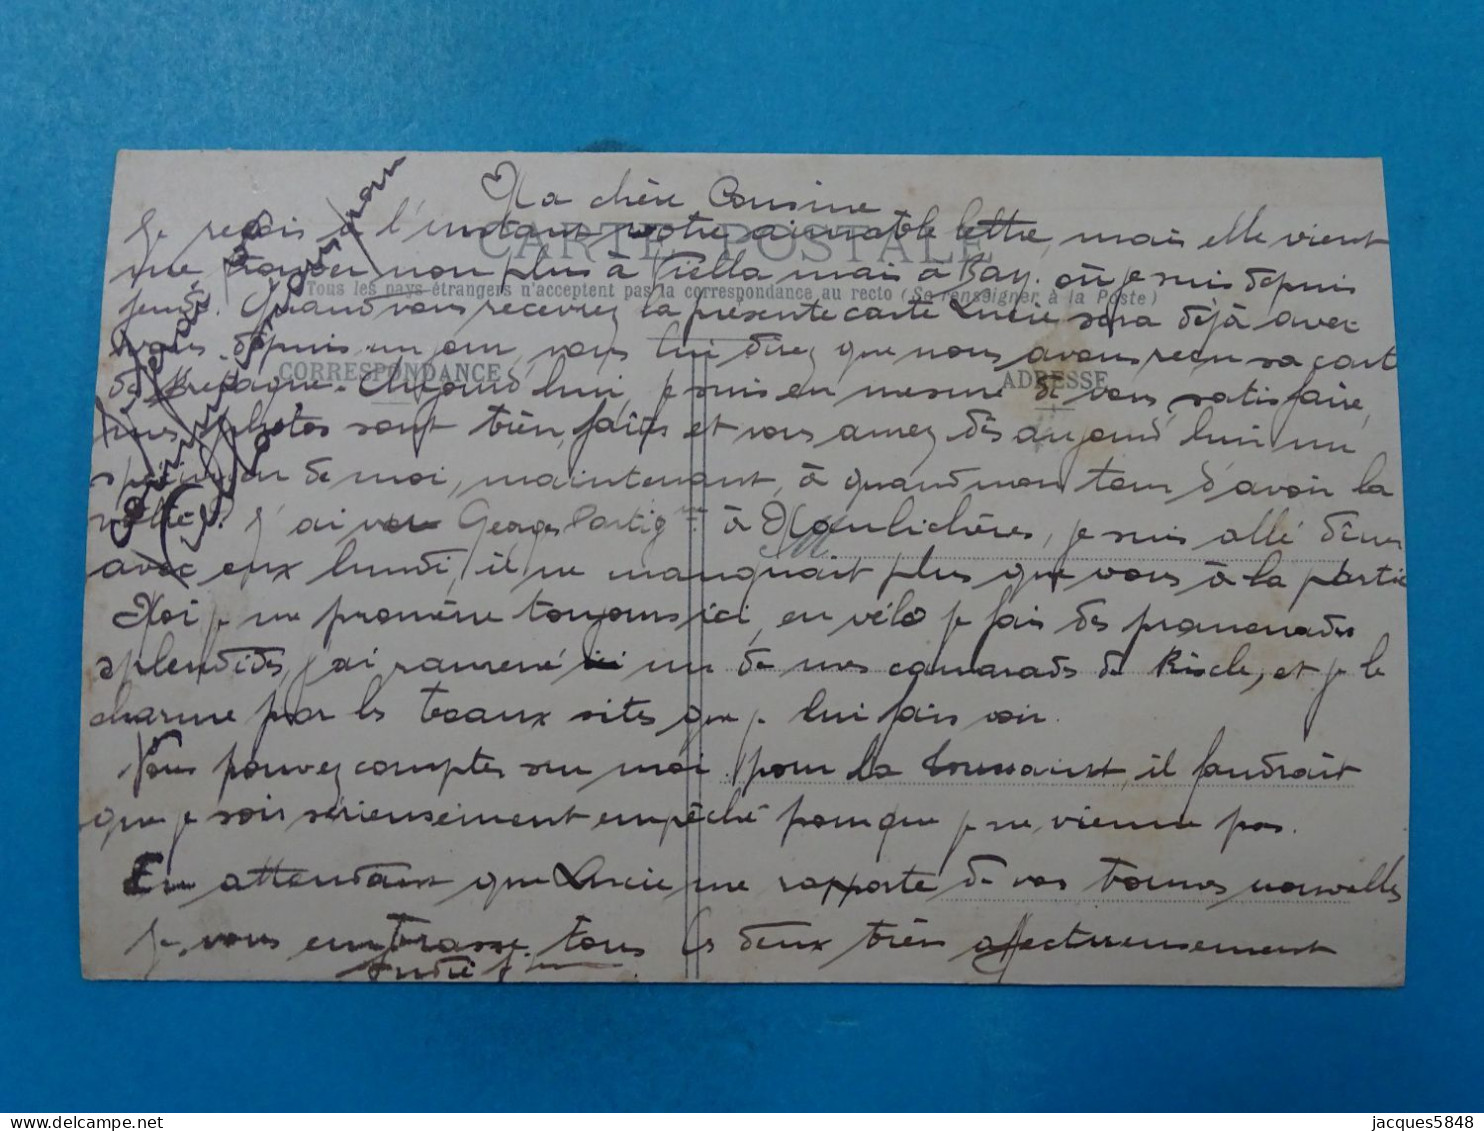 Ma chère Cousine
CARTE POSTALE
Je reçois à l'instant votre aimable lettre, mais elle vient
me trouver non plus à Viella mais à Bay. où je suis depuis
Tous les pays étrangers n'acceptent pas la correspondance au recto (Se renseigner à la Poste)
jeudi. Quand vous recevrez la présente carte Lucie sera déjà avec
vous depuis un jour, vous lui direz que nous avons reçu sa cart
CORRESPONDANCE
ADRESSE
de Bretagne. Aujourd'hui, je suis en mesure de vous satisfaire,
mes photos sont très faites et vous aurez dès aujourd'hui un
spécimen de moi, maintenant, à quand mon tour d'avoir la
vôtre. J'ai vu Georges à Maulichères, je suis allé dîner
avec eux lundi, il ne manquait plus que vous à la partie
Moi je me promène toujours ici, en vélo je fais des promenades
splendides, j'ai ramené ici un de mes camarades de Riscle, et je le
charme par les beaux sites que je lui fais voir.
Vous pouvez comptes sur moi pour la toussaint, il faudrait
que je sois sérieusement empêché pour que je ne vienne pas.
En attendant que Lucie me rapporte de vos bonnes nouvelles
je vous embrasse tous les deux très affectueusement
André
jacques5848